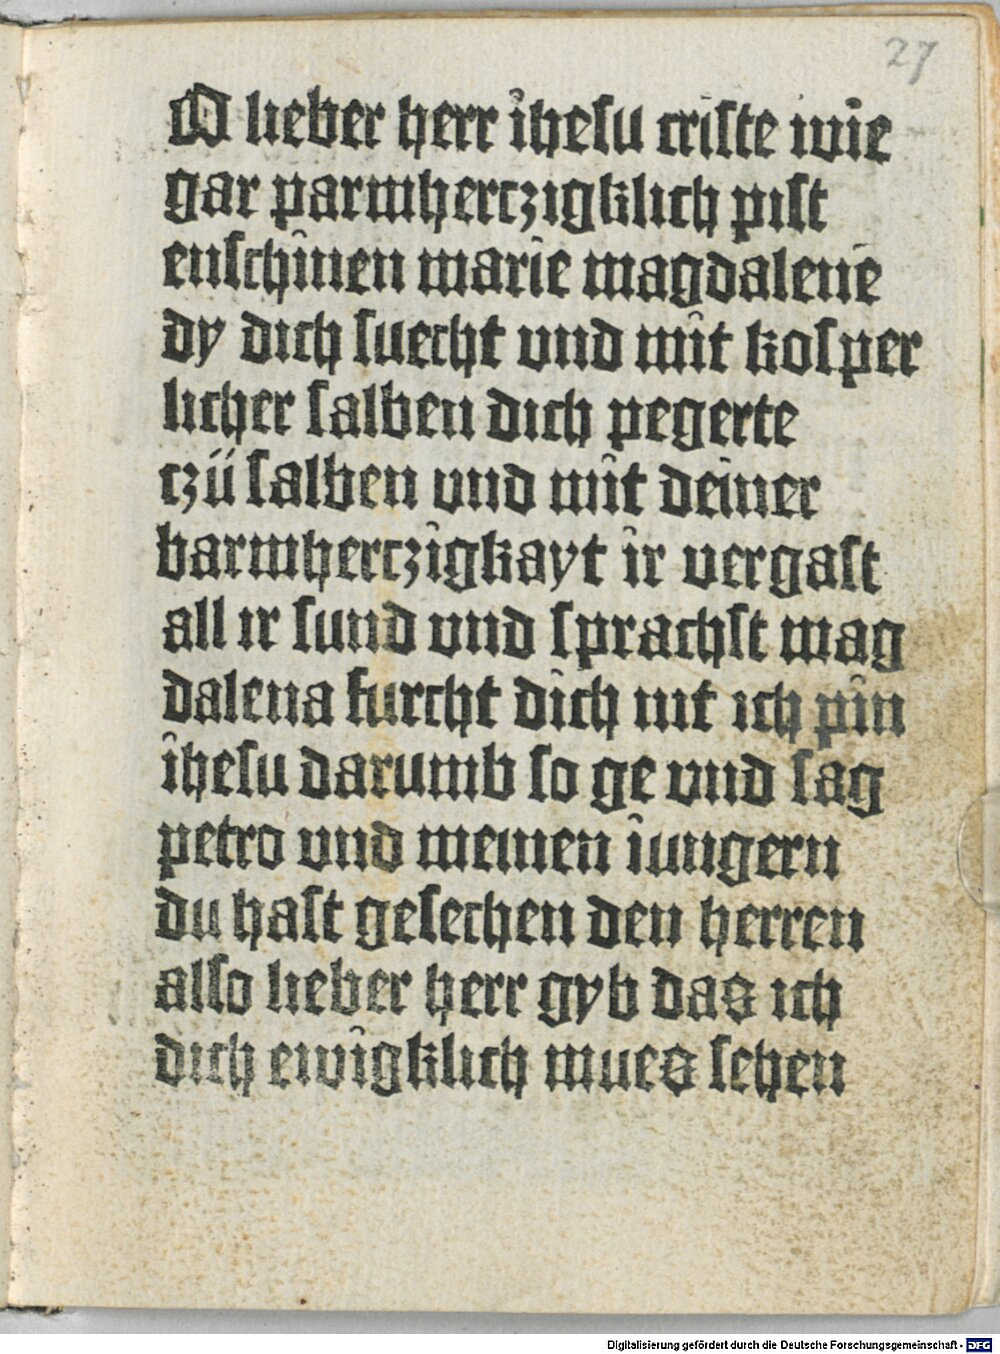 27
O lieber herr ihesu criste wie
gar parmherczigklich pist
enschinen marie magdalene
dy dich suecht vnd mit kosper
licher salben dich pegerte
czü salben vnd mit deiner
barmherczigkayt ir vergast
all ir sund vnd sprachst mag
dalena furcht dich nit ich pin
ihesu darumb so ge vnd sag
petro vnd meinen iungern
du hast gesechen den herren
also lieber herr gyb das ich
dich ewigklich mues sehen
Digitalisierung gefördert durch die Deutsche Forschungsgemeinschaft - DFG